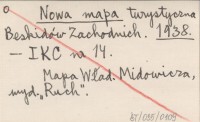 Nowa mapa turystyczna
Beskidów Zachodnich. 1938.
— IKC na 14.
Mapa Wład. Midowicza,
wyd. „Ruch".